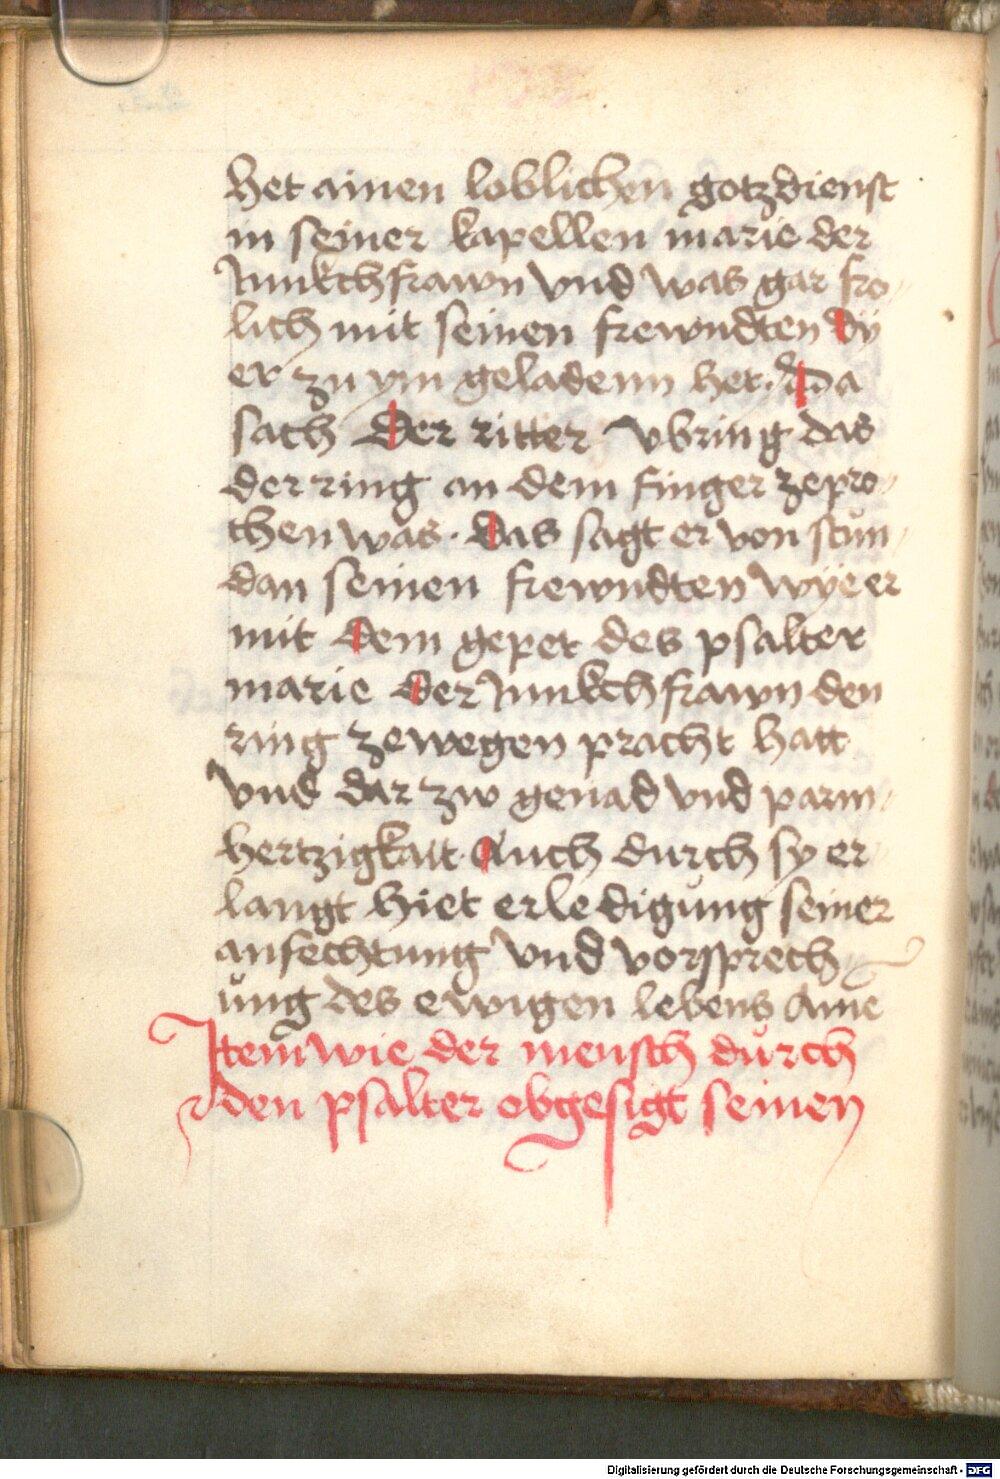 het ainen loblichen gotzdienst
in seiner kapellen marie der
Junkchfrawn vnd was gar fro-
lich mit seinen frewndten Dy
er zu ym geladenn het. Da
sach Der ritter vbring das
der ring an dem finger zepro-
chen was. Das sagt er von stůn-
dan seinen frewndten wye er
mit dem gepet des psalter
marie der Junkchfrawn den
ring zewegen pracht hatt
vnd dar zw genad vnd parm-
hertzigkait. Auch durch sy er
langt hiet erledigůng seiner
anfechtung vnd vorsprech
ůng des ewigen lebens Amē
Item wie der mensch důrch
den psalter obgesigt seinen
Digitalisierung gefördert durch die Deutsche Forschungsgemeinschaft - DFG